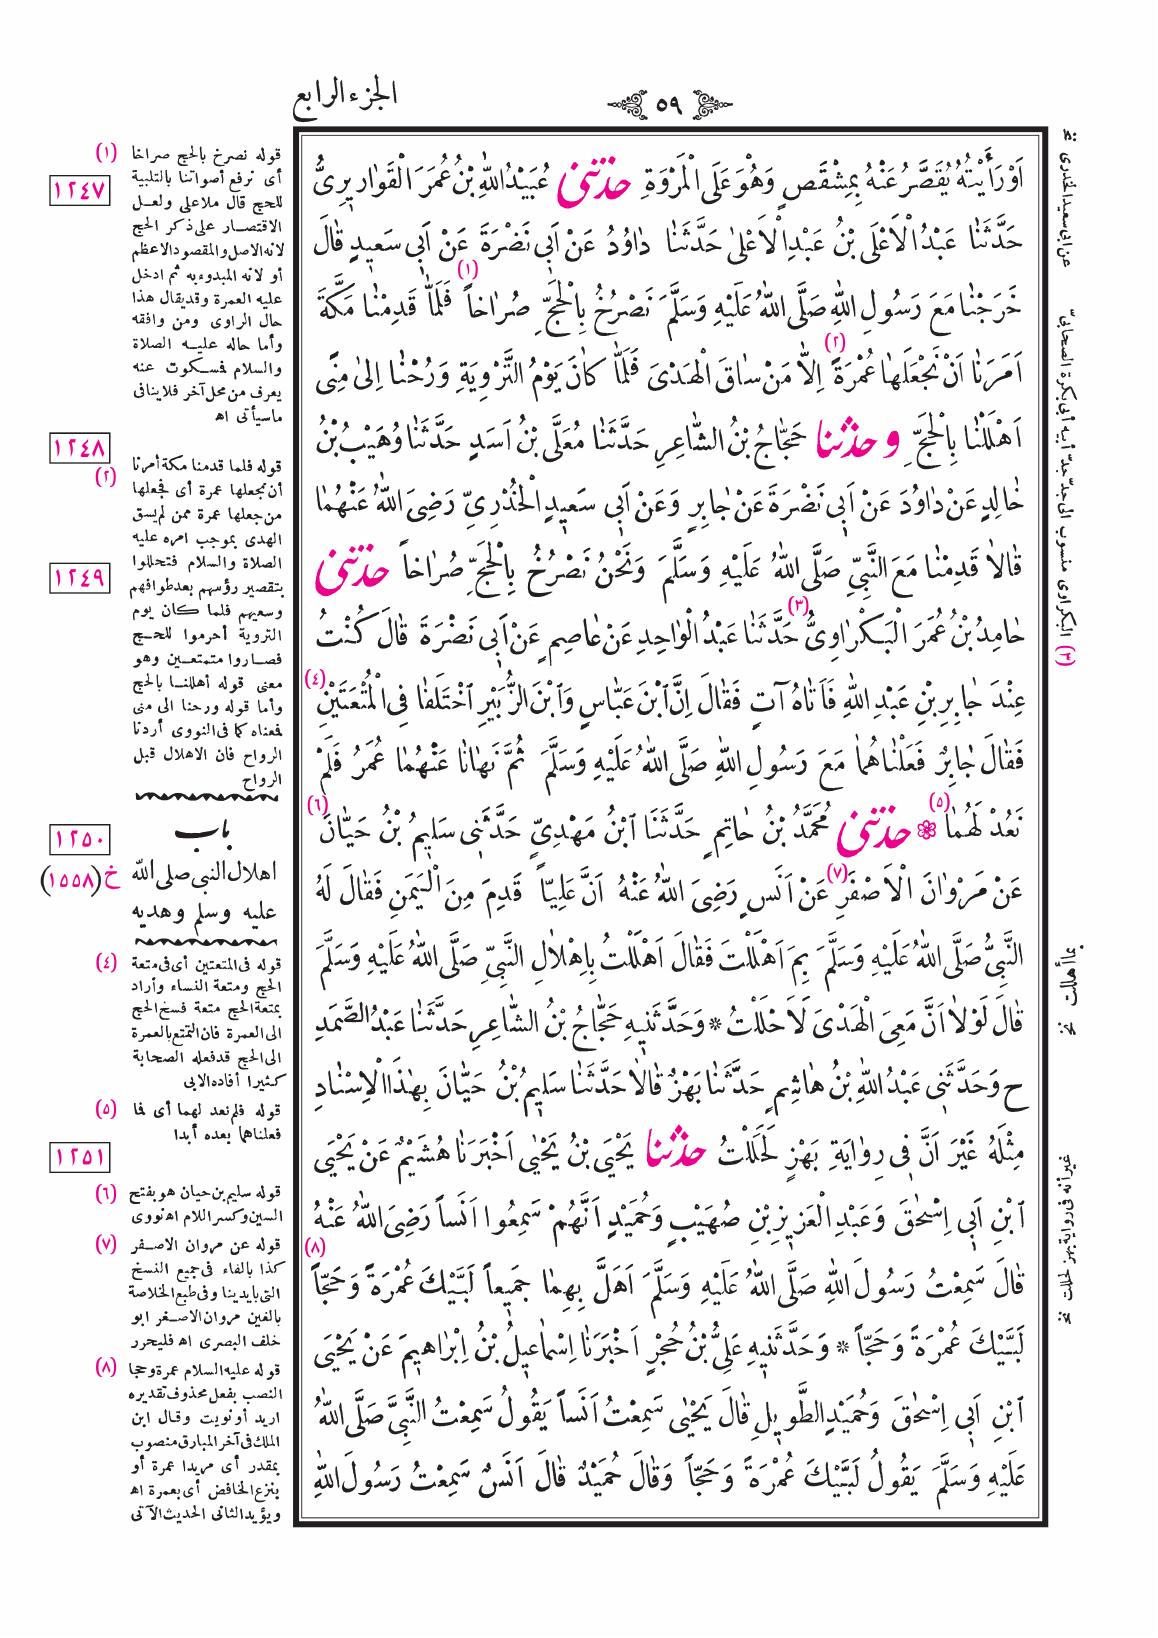 الجزء الرابع
٥٩
اَوْ رَأَيْتُهُ يُقَصَّرُ عَنْهُ بِمِشْقَصٍ وَهُوَ عَلَى الْمَرْوَةِ حَدَّثَنِى عُبَيْدُ اللّٰهِ بْنُ عُمَرَ الْقَوَارِيرِىُّ
حَدَّثَنَا عَبْدُ الْاَعْلَى بْنُ عَبْدِ الْاَعْلىٰ حَدَّثَنَا دَاوُدُ عَنْ اَبِى نَضْرَةَ عَنْ اَبِى سَعِيدٍ قَالَ
خَرَجْنَا مَعَ رَسُولِ اللّٰهِ صَلَّى اللّٰهُ عَلَيْهِ وَسَلَّمَ نَصْرُخُ بِالْحَجِّ صُرَاخاً (١) فَلَمَّا قَدِمْنَا مَكَّةَ
اَمَرَنَا اَنْ نَجْعَلَهَا عُمْرَةً (٢) اِلَّا مَنْ سَاقَ الْهَدْىَ فَلَمَّا كَانَ يَوْمُ التَّرْوِيَةِ وَرُحْنَا اِلىٰ مِنًى
اَهْلَلْنَا بِالْحَجِّ وَ حَدَّثَنَا حَجَّاجُ بْنُ الشَّاعِرِ حَدَّثَنَا مُعَلَّى بْنُ اَسَدٍ حَدَّثَنَا وُهَيْبُ بْنُ
خَالِدٍ عَنْ دَاوُدَ عَنْ اَبِى نَضْرَةَ عَنْ جَابِرٍ وَعَنْ اَبِى سَعِيدٍ الْخُدْرِىِّ رَضِىَ اللّٰهُ عَنْهُمَا
قَالَا قَدِمْنَا مَعَ النَّبِىِّ صَلَّى اللّٰهُ عَلَيْهِ وَسَلَّمَ وَنَحْنُ نَصْرُخُ بِالْحَجِّ صُرَاخاً حَدَّثَنِى
حَامِدُ بْنُ عُمَرَ الْبَكْرَاوِىُّ (٣) حَدَّثَنَا عَبْدُ الْوَاحِدِ عَنْ عَاصِمٍ عَنْ اَبِى نَضْرَةَ قَالَ كُنْتُ
عِنْدَ جَابِرِ بْنِ عَبْدِ اللّٰهِ فَاَتَاهُ آتٍ فَقَالَ اِنَّ ابْنَ عَبَّاسٍ وَابْنَ الزُّبَيْرِ اخْتَلَفَا فِى الْمُتْعَتَيْنِ (٤)
فَقَالَ جَابِرٌ فَعَلْنَاهُمَا مَعَ رَسُولِ اللّٰهِ صَلَّى اللّٰهُ عَلَيْهِ وَسَلَّمَ ثُمَّ نَهَانَا عَنْهُمَا عُمَرُ فَلَمْ
نَعُدْ لَهُمَا (٥) حَدَّثَنِى مُحَمَّدُ بْنُ حَاتِمٍ حَدَّثَنَا ابْنُ مَهْدِىٍّ حَدَّثَنِى سَلِيمُ بْنُ حَيَّانَ (٦)
عَنْ مَرْوَانَ الْاَصْفَرِ (٧) عَنْ اَنَسٍ رَضِىَ اللّٰهُ عَنْهُ اَنَّ عَلِيّاً قَدِمَ مِنَ الْيَمَنِ فَقَالَ لَهُ
النَّبِىُّ صَلَّى اللّٰهُ عَلَيْهِ وَسَلَّمَ بِمَ اَهْلَلْتَ فَقَالَ اَهْلَلْتُ بِاِهْلَالِ النَّبِىِّ صَلَّى اللّٰهُ عَلَيْهِ وَسَلَّمَ
قَالَ لَوْلَا اَنَّ مَعِىَ الْهَدْىَ لَاَحْلَلْتُ * وَحَدَّثَنِيهِ حَجَّاجُ بْنُ الشَّاعِرِ حَدَّثَنَا عَبْدُ الصَّمَدِ
ح وَحَدَّثَنِى عَبْدُ اللّٰهِ بْنُ هَاشِمٍ حَدَّثَنَا بَهْزٌ قَالَا حَدَّثَنَا سَلِيمُ بْنُ حَيَّانَ بِهٰذَا الْاِسْنَادِ
مِثْلَهُ غَيْرَ اَنَّ فِى رِوَايَةِ بَهْزٍ لَحَلَلْتُ حَدَّثَنَا يَحْيَى بْنُ يَحْيىٰ اَخْبَرَنَا هُشَيْمٌ عَنْ يَحْيَى
ابْنِ اَبِى اِسْحٰقَ وَعَبْدِ الْعَزِيزِ بْنِ صُهَيْبٍ وَحُمَيْدٍ اَنَّهُمْ سَمِعُوا اَنَساً رَضِىَ اللّٰهُ عَنْهُ
قَالَ سَمِعْتُ رَسُولَ اللّٰهِ صَلَّى اللّٰهُ عَلَيْهِ وَسَلَّمَ اَهَلَّ بِهِمَا جَمِيعاً لَبَّيْكَ عُمْرَةً وَحَجّاً (٨)
لَبَّيْكَ عُمْرَةً وَحَجّاً * وَحَدَّثَنِيهِ عَلِىُّ بْنُ حُجْرٍ اَخْبَرَنَا اِسْمَاعِيلُ بْنُ اِبْرَاهِيمَ عَنْ يَحْيَى
ابْنِ اَبِى اِسْحٰقَ وَحُمَيْدٍ الطَّوِيلِ قَالَ يَحْيىٰ سَمِعْتُ اَنَساً يَقُولُ سَمِعْتُ النَّبِىَّ صَلَّى اللّٰهُ
عَلَيْهِ وَسَلَّمَ يَقُولُ لَبَّيْكَ عُمْرَةً وَحَجّاً وَقَالَ حُمَيْدٌ قَالَ اَنَسٌ سَمِعْتُ رَسُولَ اللّٰهِ
عن ابى سعيد الخدرى نخ
(٣) البكراوى منسوب الى جدّ جدّ أبيه أبى بكرة الصحابىّ
بما أهللت نخ
غير أنه فى رواية بهز لحللت نخ
(١) قوله نصرخ بالحج صراخا
١٢٤٧
أى نرفع أصواتنا بالتلبية
للحج قال ملا على ولعل
الاقتصار على ذكر الحج
لانه الاصل والمقصود الاعظم
أو لانه المبدوء به ثم ادخل
عليه العمرة وقد يقال هذا
حال الراوى ومن وافقه
وأما حاله عليه الصلاة
والسلام فسكوت عنه
يعرف من محل آخر فلا ينافى
ما سيأتى اه
١٢٤٨
(٢) قوله فلما قدمنا مكة أمرنا
أن نجعلها عمرة أى فجعلها
من جعلها عمرة ممن لم يسق
الهدى بموجب امره عليه
الصلاة والسلام فتحللوا
١٢٤٩
بتقصير رؤسهم بعد طوافهم
وسعيهم فلما كان يوم
التروية أحرموا للحج
فصاروا متمتعين وهو
معنى قوله أهللنا بالحج
وأما قوله ورحنا الى منى
فمعناه كما فى النووى أردنا
الرواح فان الاهلال قبل
الرواح
١٢٥٠
باب
خ (١٥٥٨)
اهلال النبى صلى الله
عليه وسلم وهديه
(٤) قوله فى المتعتين أى فى متعة
الحج ومتعة النساء وأراد
بمتعة الحج متعة فسخ الحج
الى العمرة فان التمتع بالعمرة
الى الحج قد فعله الصحابة
كثيرا أفاده الابى
(٥) قوله فلم نعد لهما أى فما
فعلناهما بعده أبدا
١٢٥١
(٦) قوله سليم بن حيان هو بفتح
السين وكسر اللام اه نووى
(٧) قوله عن مروان الاصفر
كذا بالفاء فى جميع النسخ
التى بايدينا وفى طبع الخلاصة
بالغين مروان الاصغر ابو
خلف البصرى اه فليحرر
(٨) قوله عليه السلام عمرة وحجا
النصب بفعل محذوف تقديره
اريد أو نويت وقال ابن
الملك فى آخر المبارق منصوب
بمقدر أى مريدا عمرة أو
بنزع الخافض أى بعمرة اه
ويؤيد الثانى الحديث الآتى